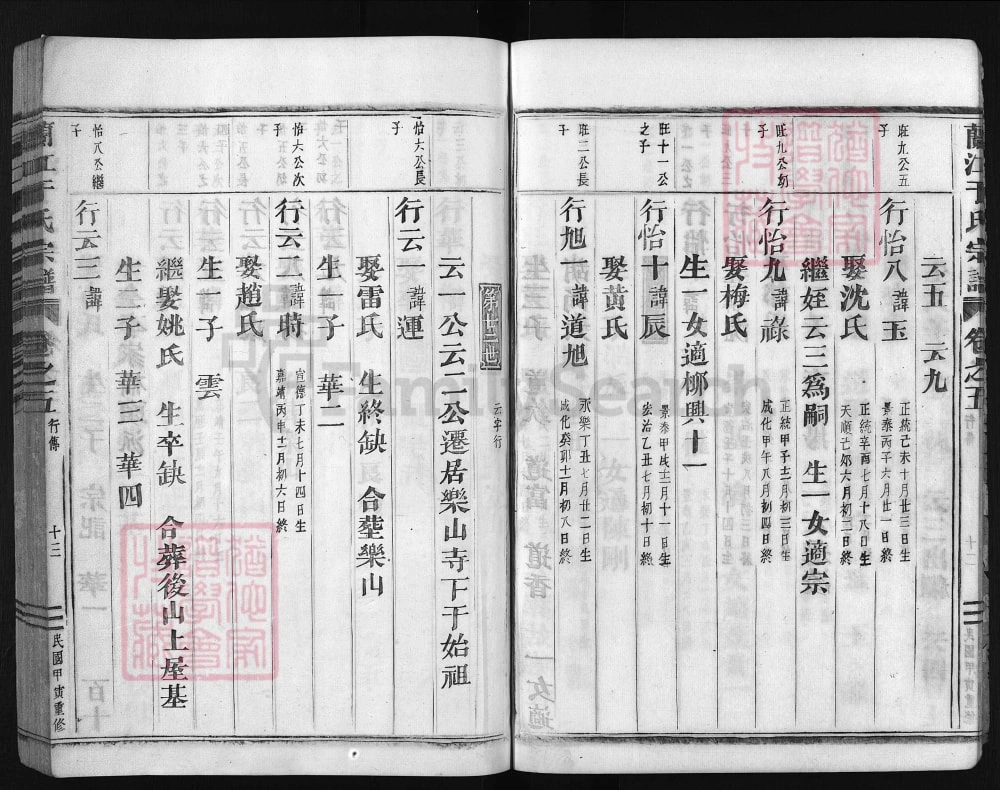 蘭江于氏宗譜 卷之五 行傳 十二 民國甲寅重修
云五 云九
旺九公五子
行怡八 諱玉 正統己未十月廿三日生 景泰丙子六月廿一日終
娶沈氏 正統辛酉七月十八日生 天順己卯六月初二日終
繼姪云三為嗣 生一女適宗
旺九公幼子
行怡九 諱祿 正統甲子十二月初三日生 成化甲午八月初四日終
娶梅氏
生一女適柳興十一
旺十一公之子
行怡十 諱辰 景泰甲戌十二月十一日生 弘治乙丑七月初十日終
娶黃氏
旺二公長子
行旭一 諱道旭 永樂丁丑七月廿二日生 成化癸卯十一月初八日終
云字行
云一公云二公遷居樂山寺下于始祖
怡六公長子
行云一 諱運
娶雷氏 生終缺 合塟樂山
生一子 華二
怡六公次子
行云二 諱時 宣德丁未七月十四日生 嘉靖丙申十二月初六日終
娶趙氏
生一子 雲
繼娶姚氏 生卒缺 合葬後山上屋基
生二子 華三 華四
怡八公繼子
行云三 諱
蘭江于氏宗譜 卷之五 行傳 十三 民國甲寅重修